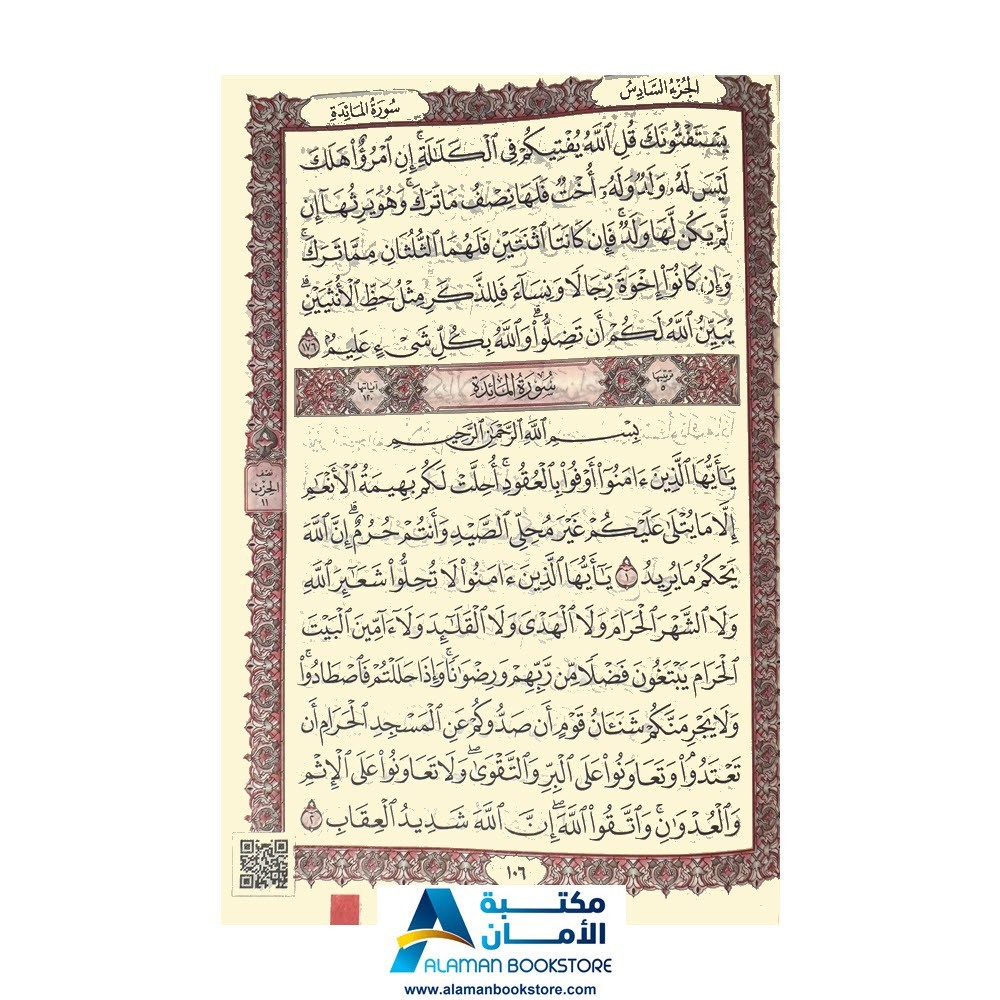 الجُزْءُ السَّادِسُ
سُورَةُ المَائِدَةِ
يَسْتَفْتُونَكَ قُلِ ٱللَّهُ يُفْتِيكُمْ فِي ٱلْكَلَٰلَةِۚ إِنِ ٱمْرُؤٌا۟ هَلَكَ
لَيْسَ لَهُۥ وَلَدٌ وَلَهُۥٓ أُخْتٌ فَلَهَا نِصْفُ مَا تَرَكَۚ وَهُوَ يَرِثُهَآ إِن
لَّمْ يَكُن لَّهَا وَلَدٌۚ فَإِن كَانَتَا ٱثْنَتَيْنِ فَلَهُمَا ٱلثُّلُثَانِ مِمَّا تَرَكَۚ
وَإِن كَانُوٓا۟ إِخْوَةً رِّجَالًا وَنِسَآءً فَلِلذَّكَرِ مِثْلُ حَظِّ ٱلْأُنثَيَيْنِۗ
يُبَيِّنُ ٱللَّهُ لَكُمْ أَن تَضِلُّوا۟ۗ وَٱللَّهُ بِكُلِّ شَىْءٍ عَلِيمٌۢ ١٧٦
ترتيبها ٥
سُورَةُ المَائِدَةِ
آياتها ١٢٠
بِسْمِ ٱللَّهِ ٱلرَّحْمَٰنِ ٱلرَّحِيمِ
يَٰٓأَيُّهَا ٱلَّذِينَ ءَامَنُوٓا۟ أَوْفُوا۟ بِٱلْعُقُودِۚ أُحِلَّتْ لَكُم بَهِيمَةُ ٱلْأَنْعَٰمِ
إِلَّا مَا يُتْلَىٰ عَلَيْكُمْ غَيْرَ مُحِلِّى ٱلصَّيْدِ وَأَنتُمْ حُرُمٌۗ إِنَّ ٱللَّهَ
يَحْكُمُ مَا يُرِيدُ ١ يَٰٓأَيُّهَا ٱلَّذِينَ ءَامَنُوا۟ لَا تُحِلُّوا۟ شَعَٰٓئِرَ ٱللَّهِ
وَلَا ٱلشَّهْرَ ٱلْحَرَامَ وَلَا ٱلْهَدْىَ وَلَا ٱلْقَلَٰٓئِدَ وَلَآ ءَآمِّينَ ٱلْبَيْتَ
ٱلْحَرَامَ يَبْتَغُونَ فَضْلًا مِّن رَّبِّهِمْ وَرِضْوَٰنًاۚ وَإِذَا حَلَلْتُمْ فَٱصْطَادُوا۟ۚ
وَلَا يَجْرِمَنَّكُمْ شَنَـَٔانُ قَوْمٍ أَن صَدُّوكُمْ عَنِ ٱلْمَسْجِدِ ٱلْحَرَامِ أَن
تَعْتَدُوا۟ۘ وَتَعَاوَنُوا۟ عَلَى ٱلْبِرِّ وَٱلتَّقْوَىٰۖ وَلَا تَعَاوَنُوا۟ عَلَى ٱلْإِثْمِ
وَٱلْعُدْوَٰنِۚ وَٱتَّقُوا۟ ٱللَّهَۖ إِنَّ ٱللَّهَ شَدِيدُ ٱلْعِقَابِ ٢
نصف
الحزب
١١
١٠٦
مكتبة
الأمان
ALAMAN BOOKSTORE
www.alamanbookstore.com